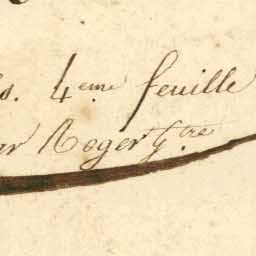 s. 4.eme feuille
ar Roger G.tre